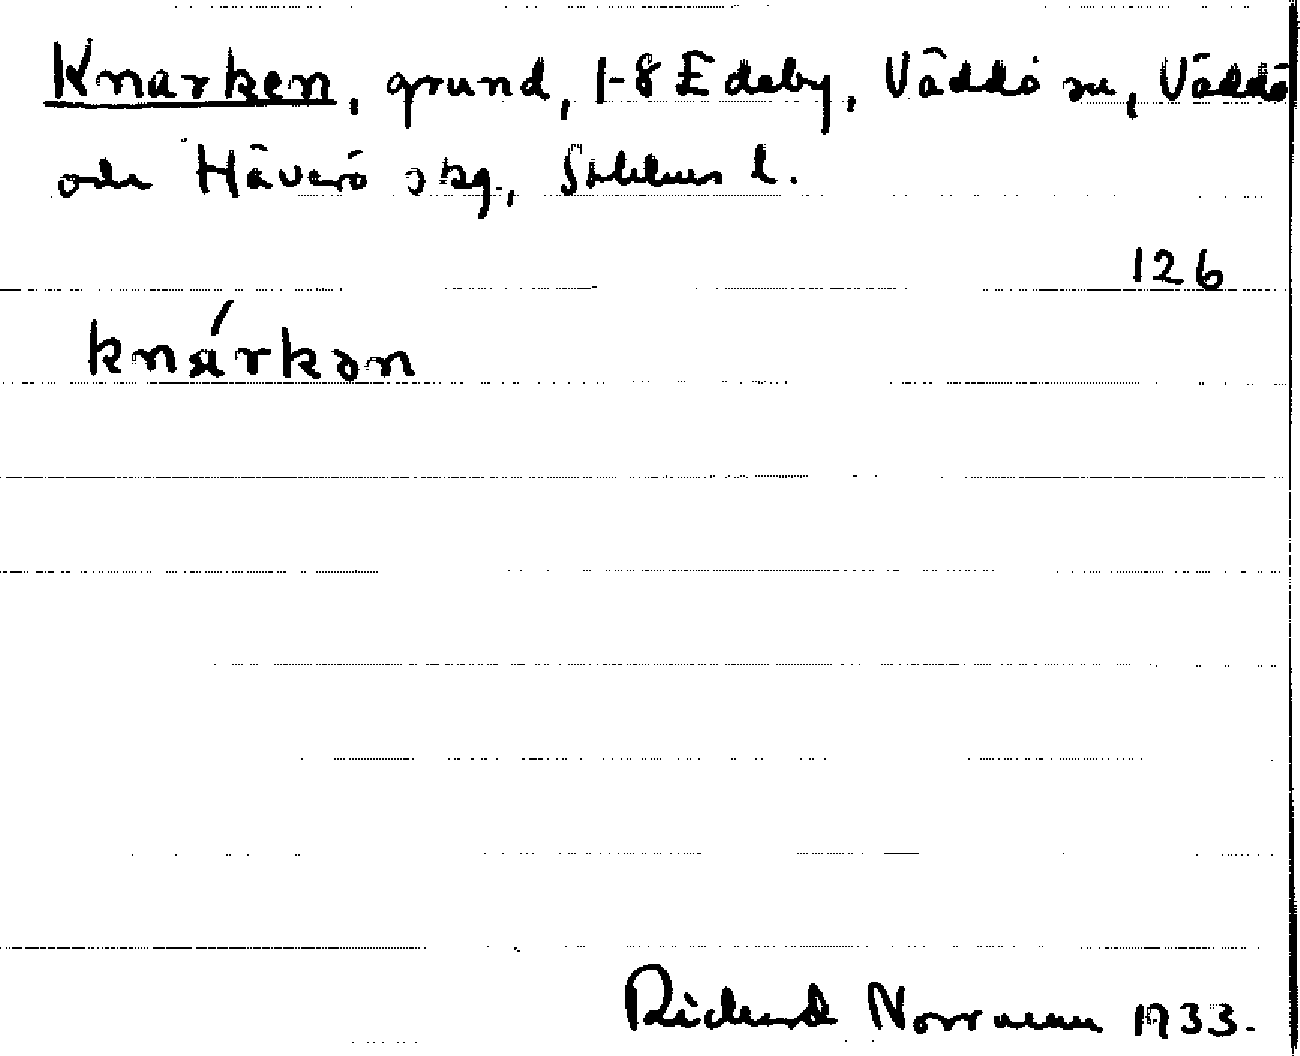 Knarken, grund, 1-8 Edeby, Väddö sn, Väddö
och Häverö skg., Sthlms l.
126
knárkən
Richard Norrman 1933.